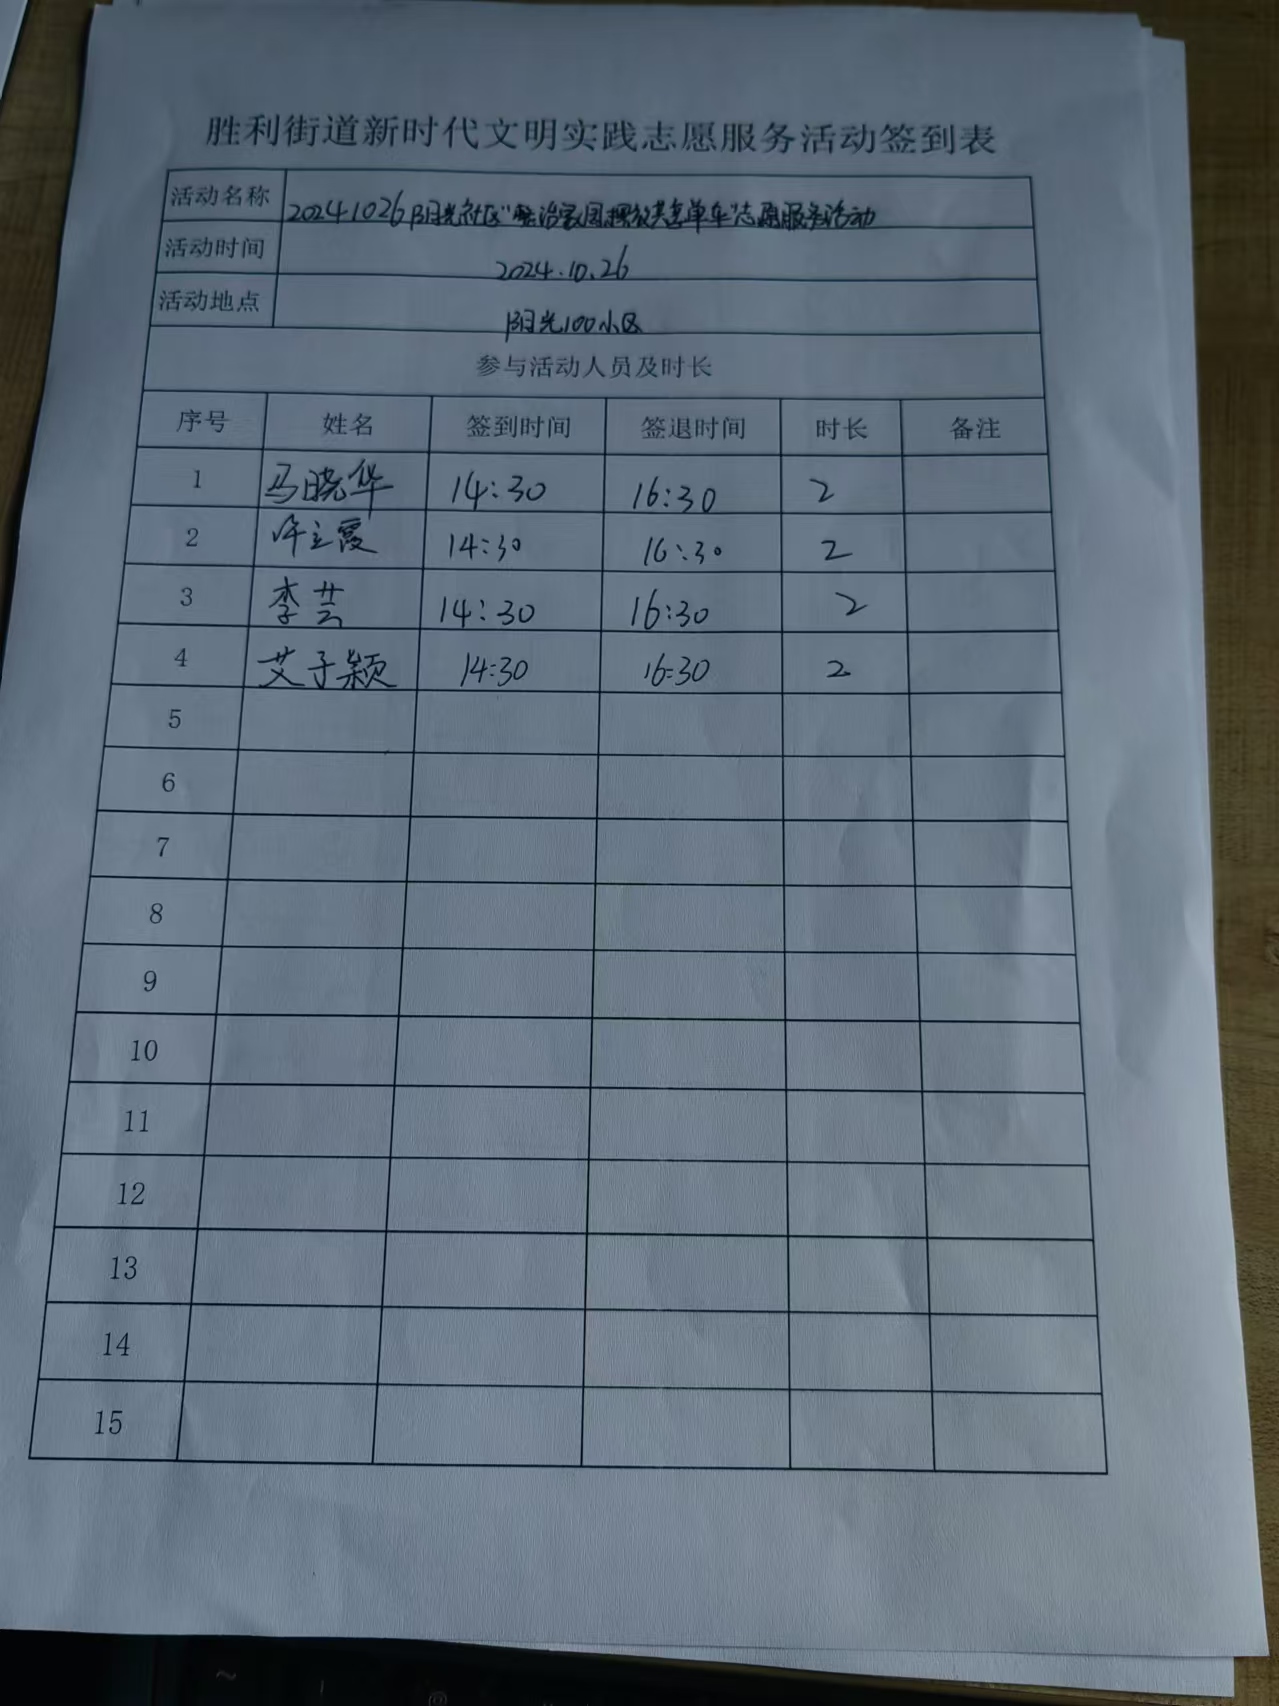 胜利街道新时代文明实践志愿服务活动签到表
活动名称 20241026阳光社区"整治家园摆放共享单车"志愿服务活动
活动时间 2024.10.26
活动地点 阳光100小区
参与活动人员及时长
序号 姓名 签到时间 签退时间 时长 备注
1 马晓华 14:30 16:30 2
2 许立霞 14:30 16:30 2
3 李芸 14:30 16:30 2
4 艾子颖 14:30 16:30 2
5
6
7
8
9
10
11
12
13
14
15